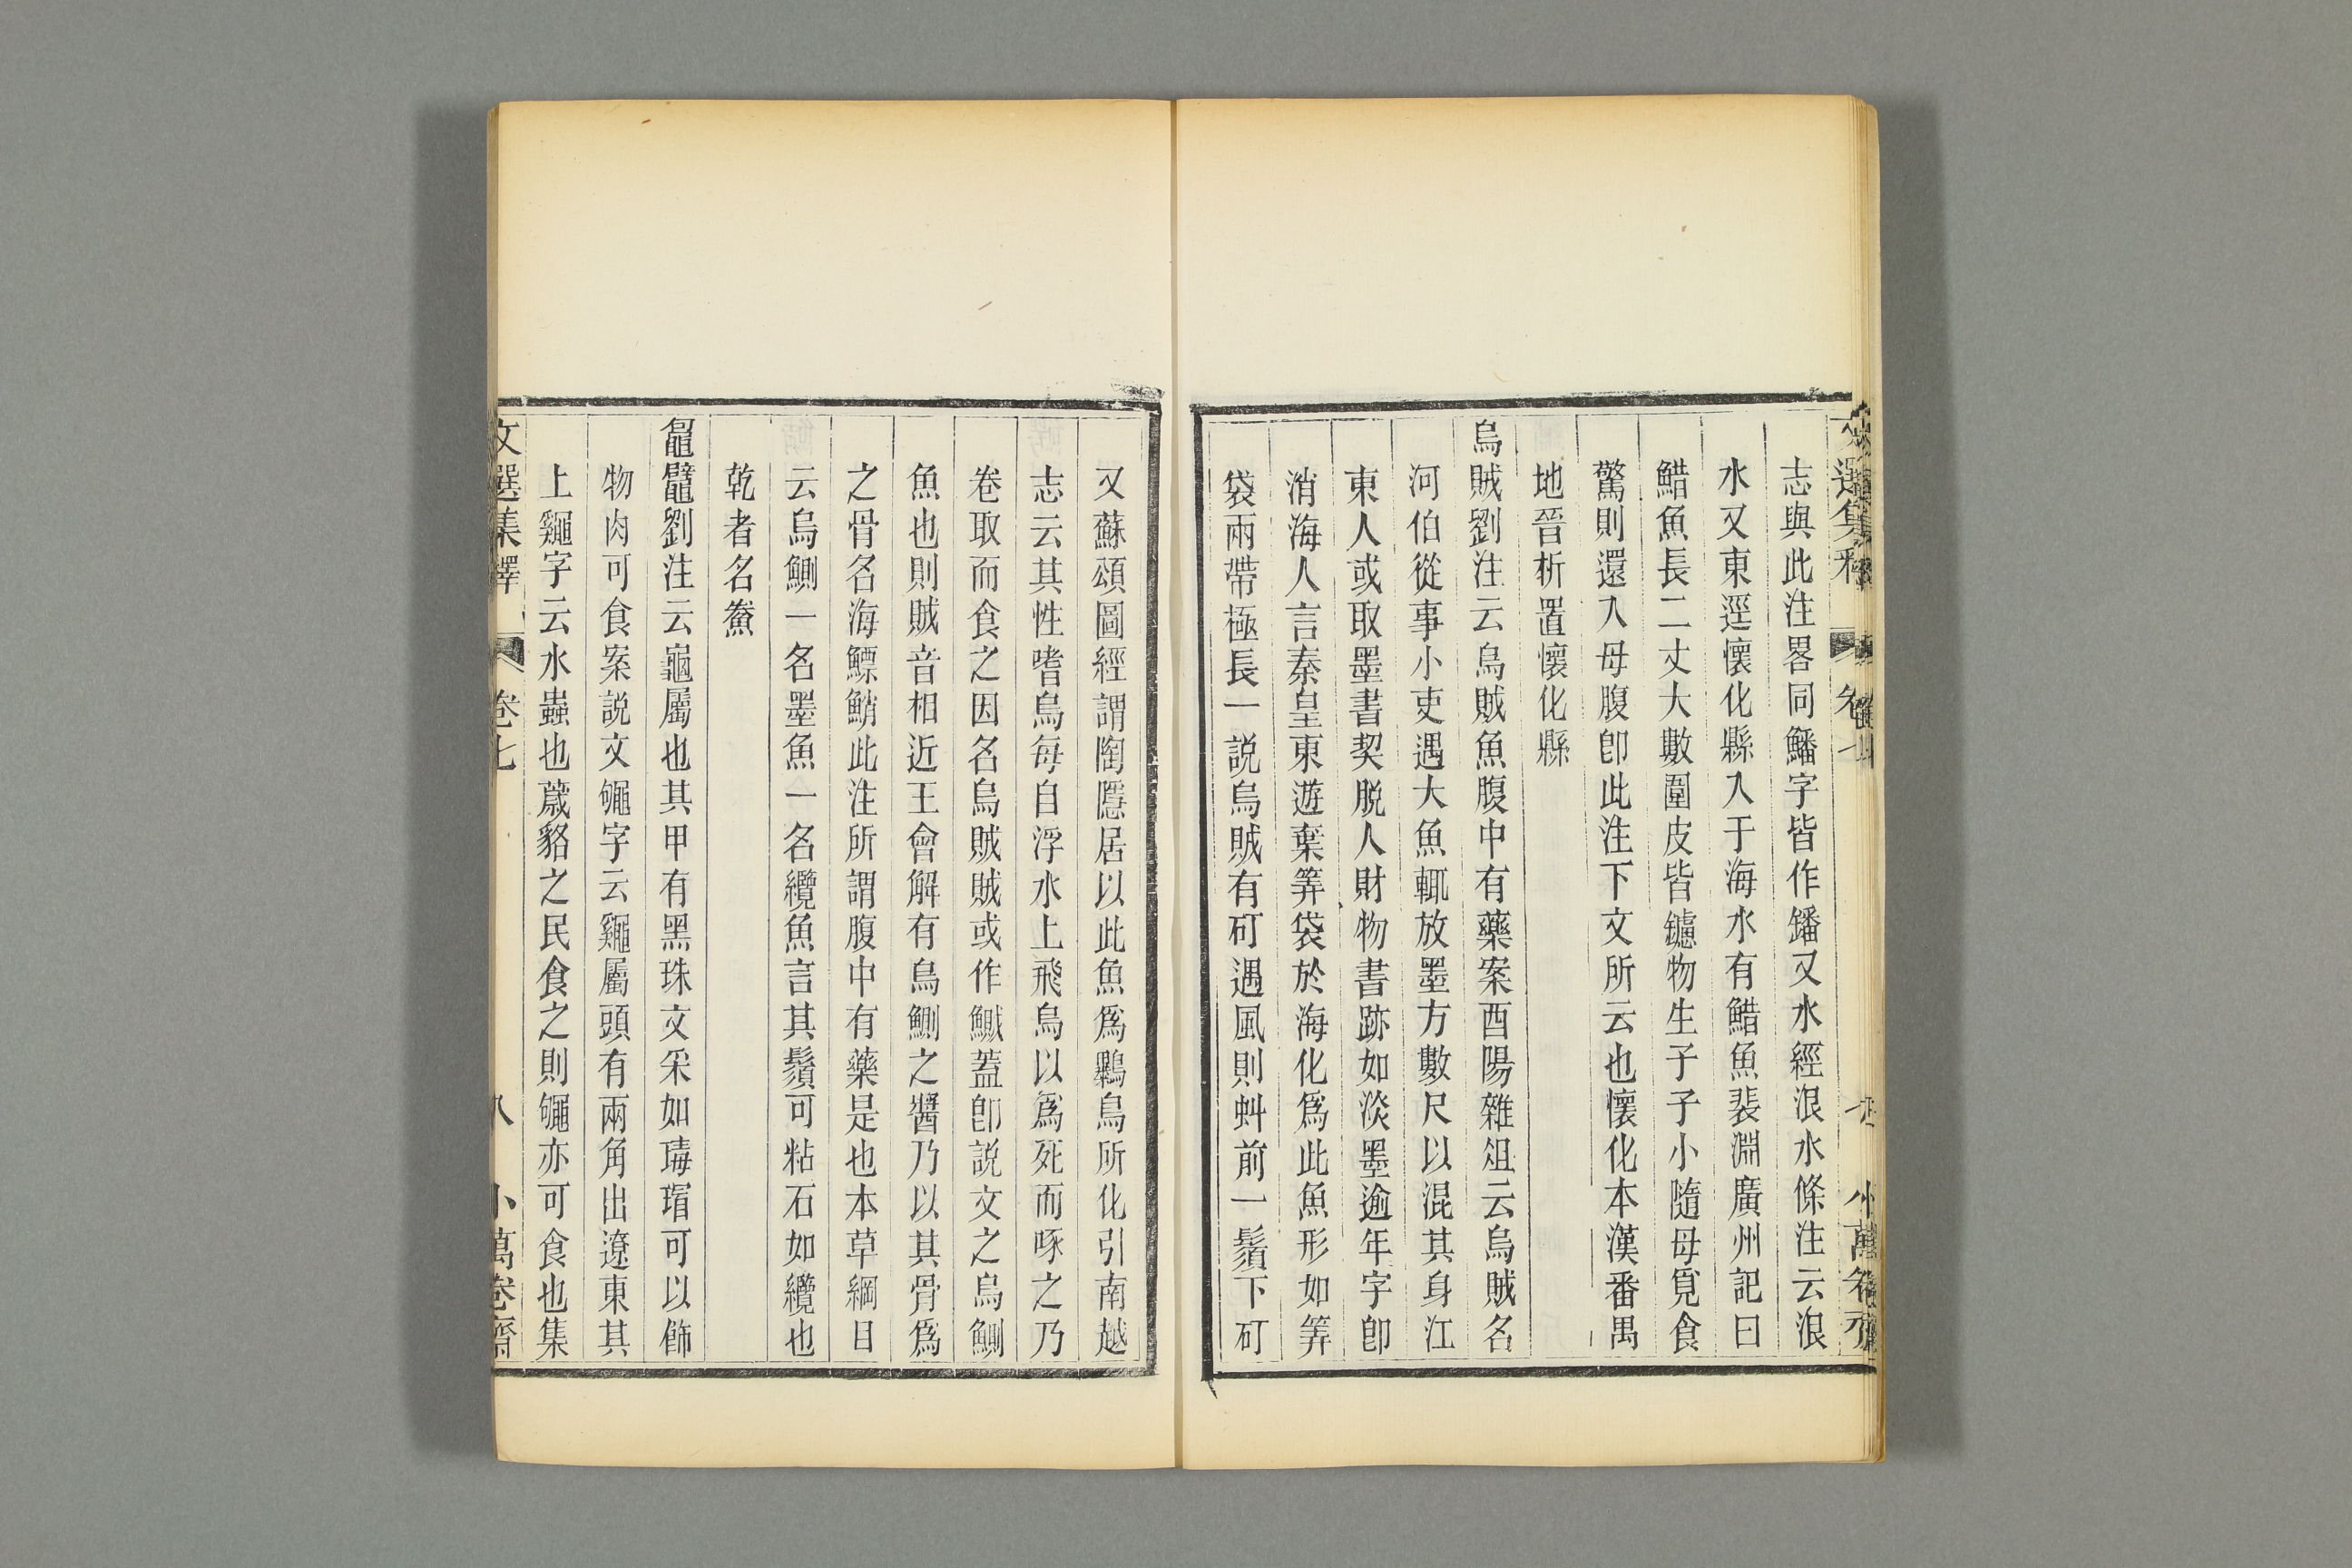 志與此注畧同鱕字皆作鐇又水經浪水條注云浪
水又東逕懷化縣入于海水有䱜魚裴淵廣州記曰
䱜魚長二丈大數圍皮皆鑢物生子子小隨母覓食
驚則還入母腹卽此注下文所云也懷化本漢番禺
地晉析置懷化縣
烏賊劉注云烏賊魚腹中有藥案酉陽雜俎云烏賊名
河伯從事小吏遇大魚輒放墨方數尺以混其身江
東人或取墨書契脫人財物書跡如淡墨逾年字卽
消海人言秦皇東遊棄筭袋於海化爲此魚形如筭
袋兩帶極長一說烏賊有矴遇風則虯前一鬚下矴
又蘇頌圖經謂陶隱居以此魚爲鸔烏所化引南越
志云其性嗜烏每自浮水上飛烏以爲死而啄之乃
卷取而食之因名烏賊賊或作鰄蓋卽說文之烏鰂
魚也則賊音相近王會解有烏鰂之醬乃以其骨爲
之骨名海鰾鮹此注所謂腹中有藥是也本草綱目
云烏鰂一名墨魚一名纜魚言其鬚可粘石如纜也
乾者名鮝
鼂䵶劉注云龜屬也其甲有黑珠文采如瑇瑁可以飾
物肉可食案說文䵶字云鼅屬頭有兩角出遼東其
上字云水蟲也薉貉之民食之則䵶亦可食也集
文選集釋 卷七 八 小萬卷齋